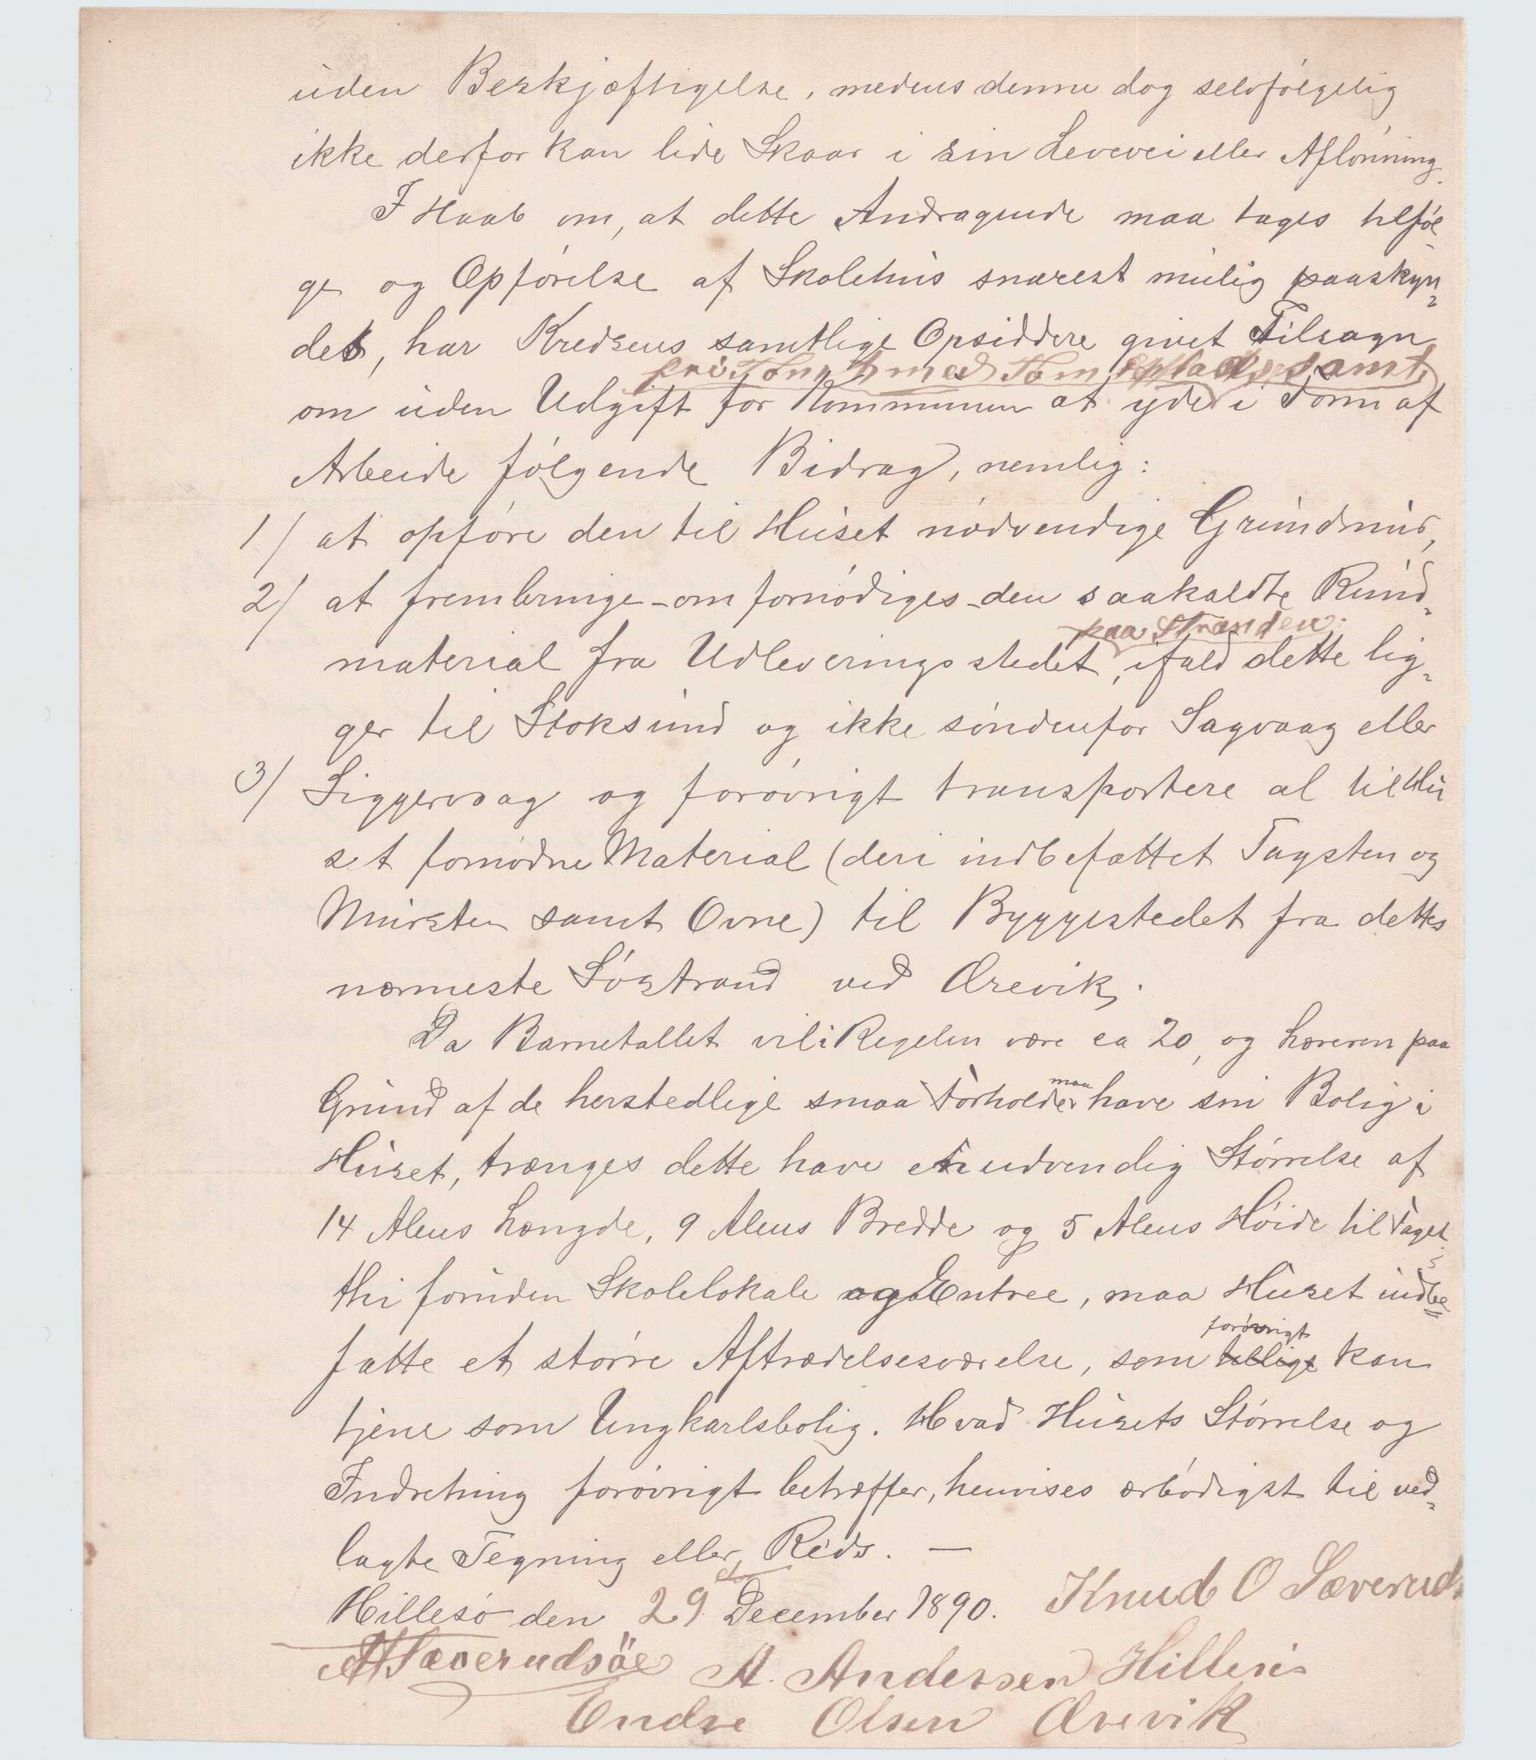 uden Beskjæftigelse, medens denne dog selvfølgelig
ikke derfor kan lide Skaar i sin Levevei eller Aflønning.
I Haab om, at dette Andragende maa tages tilføl-
ge og Opførelse af Skolehus snarest mulig paaskyn-
det, har Kredsens samtlige Opsiddere givet Tilsagn
fri Tomt med Tomteplads samt
om uden Udgift for Kommunen at yde i Form af
Arbeide følgende Bidrag, nemlig:
1/ at opføre den til Huset nødvendige Grundmur,
2/ at frembringe - om fornødiges - den saakaldte Rund-
paa Stranden
material fra Udleveringsstedet, ifald dette lig-
ger til Stoksund og ikke søndenfor Sagvaag eller
3/ Siggervaag og forøvrigt transportere al til Hu
set fornødne Material (deri indbefattet Tagsten og
Mursten samt Ovne) til Byggestedet fra dettes
nærmeste Søstrand ved Ørevik.
Da Barnetallet vil i Regelen være ca 20, og Læreren paa
maa
Grund af de herstedlige smaa Forholde have sin Bolig i
Huset, trænges dette have en udvendig Størrelse af
14 Alens Længde, 9 Alens Bredde og 5 Alens Høide til Taget;
thi foruden Skolelokale og Entree, maa Huset indbe
forøvrigt
fatte et større Aftrædelsesværelse, som tillige kan
tjene som Ungkarlsbolig. Hvad Husets Størrelse og
Indretning forøvrigt betræffer, henvises ærbødigst til ved-
lagte Tegning eller Rids. —
Hillesø den 29 December 1890. Knud O Sæverud
A Sæverudsøe A. Andersen Hillesø
Endre Olsen Ørevik